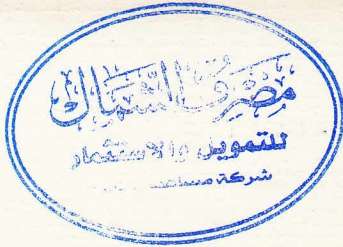 مصرف الشمال
للتمويل والاستثمار
شركة مساهمة